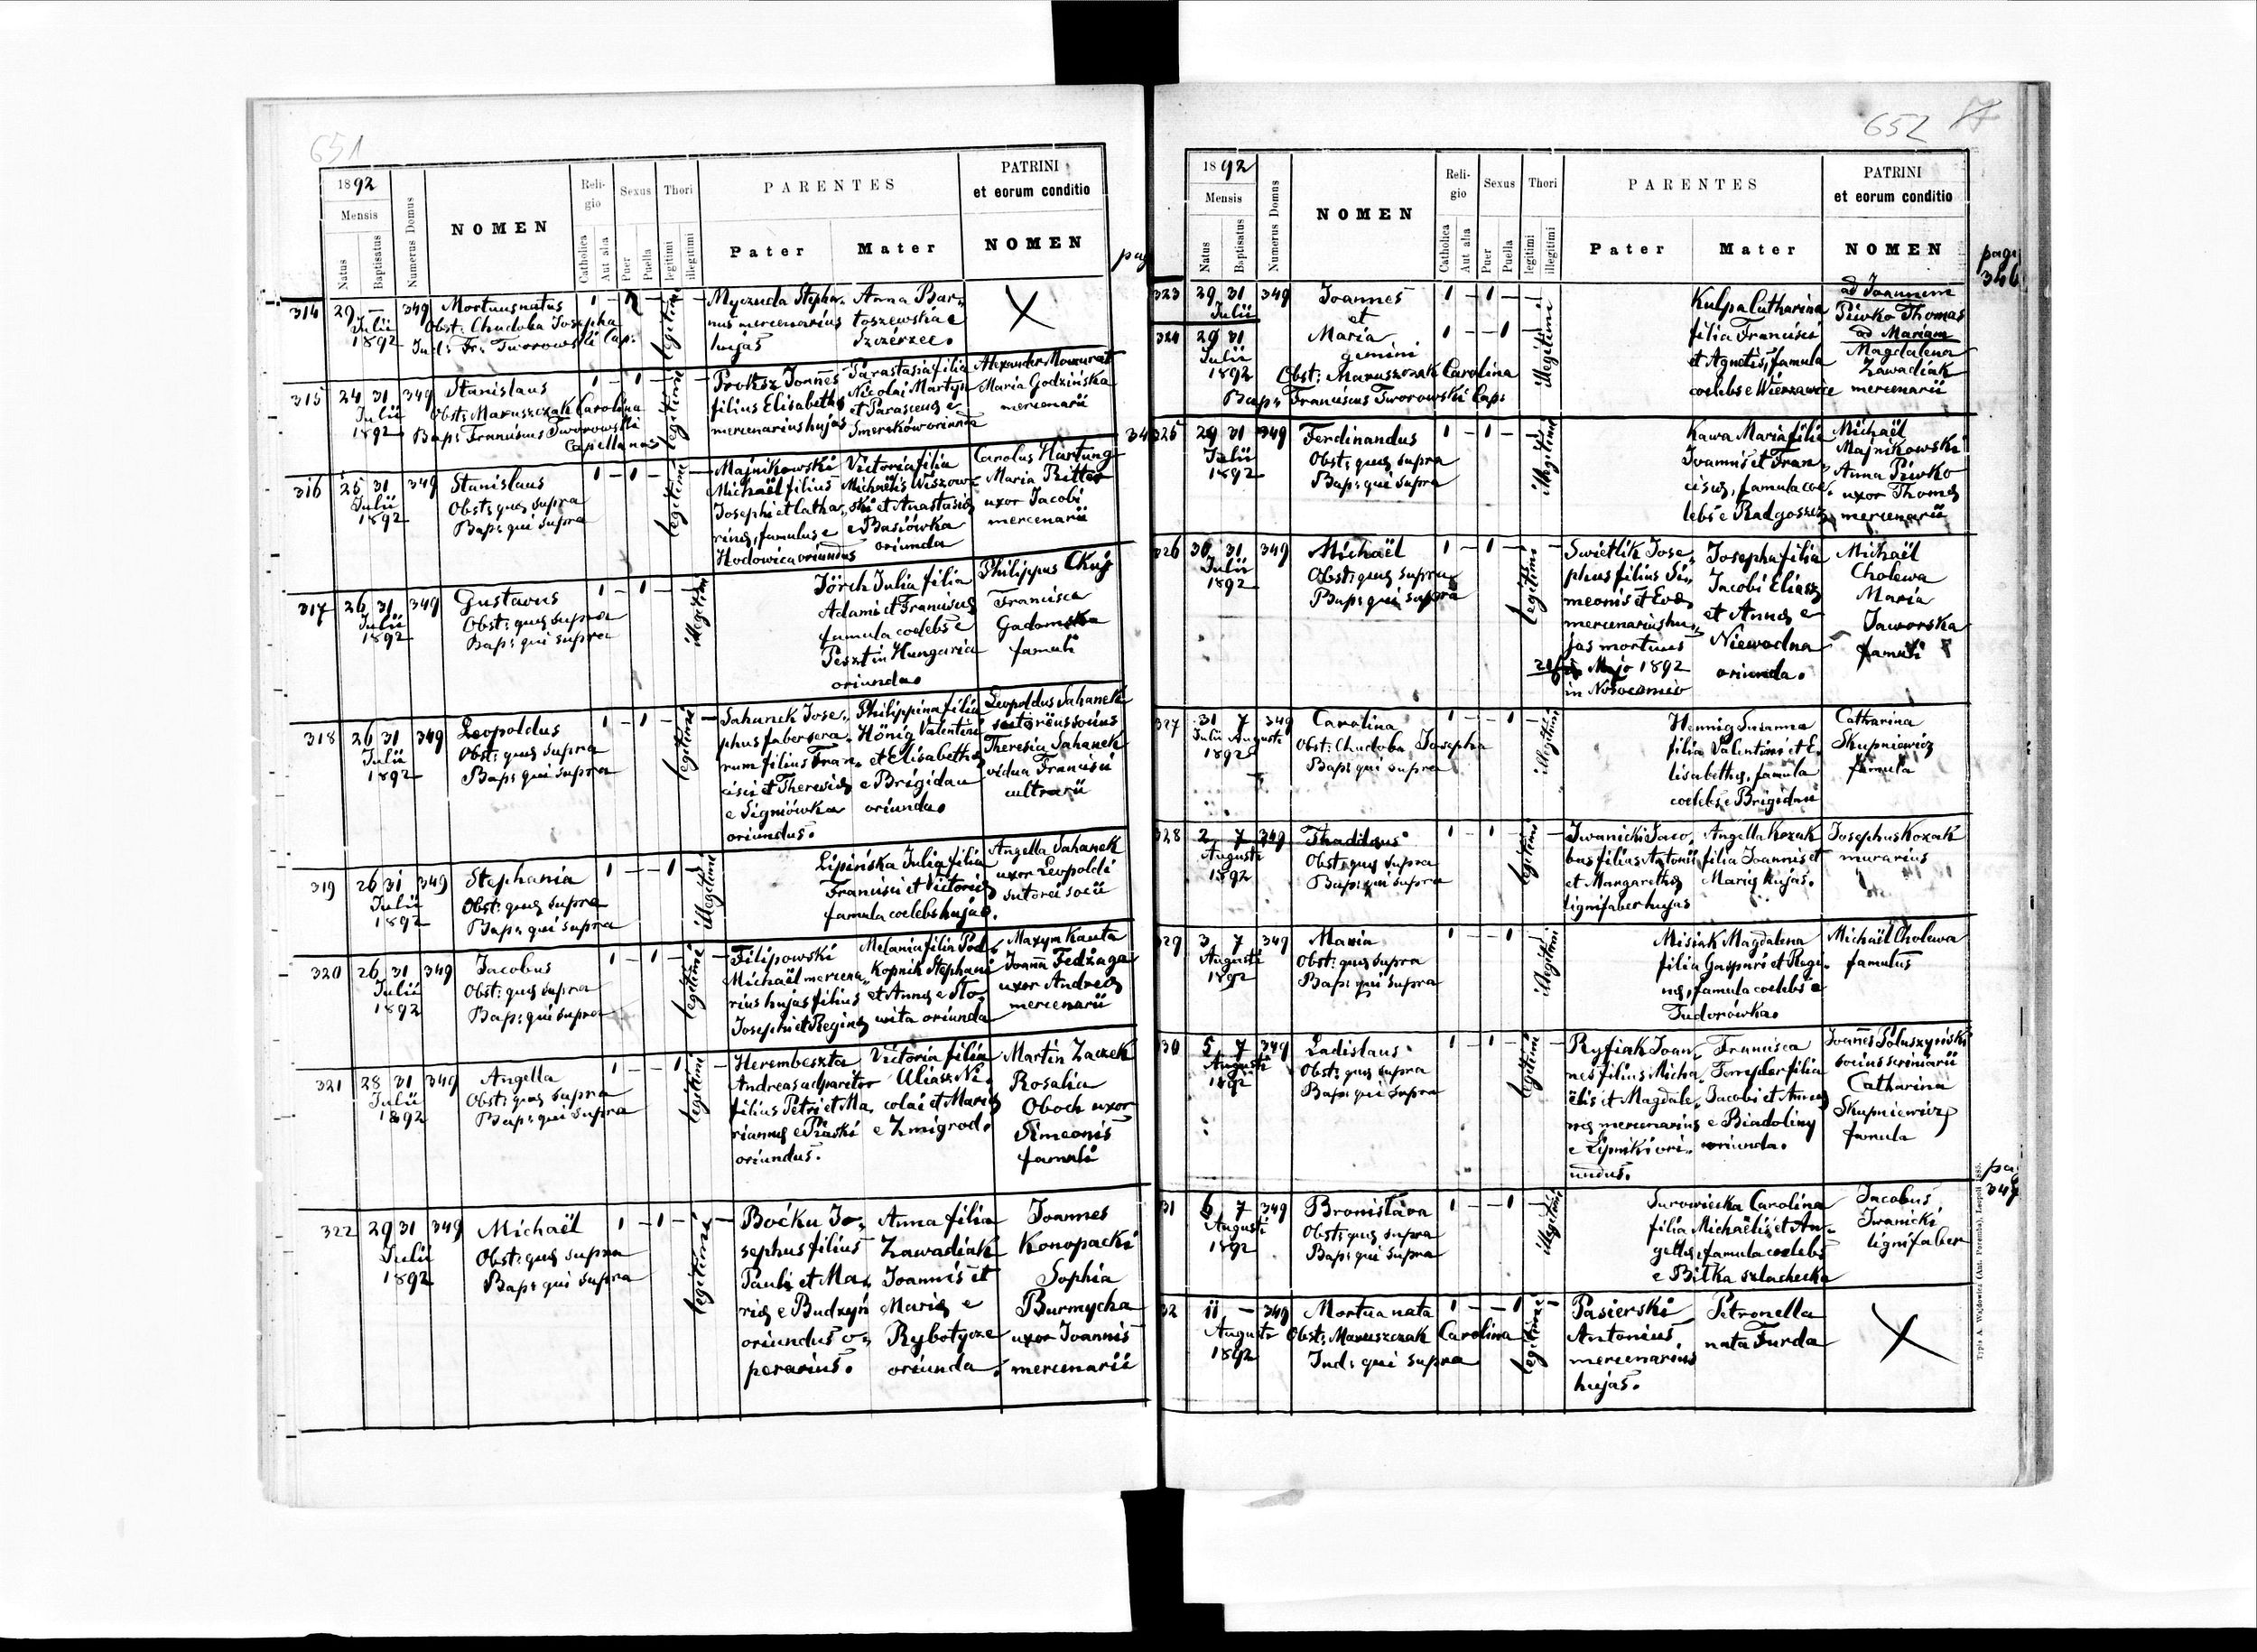 651
1892
Mensis
Natus
Baptisatus
Numerus Domus
NOMEN
Reli-
gio
Catholica
Aut alia
Sexus
Puer
Puella
Thori
legitimi
illegitimi
PARENTES
Pater
Mater
PATRINI
et eorum conditio
NOMEN
pag
314 29 — 349 Mortuusnatus 1 — 1 — legitimi — Myczuda Stepha- Anna Bar-
Julii Obst: Chudoba Josepha nus mercenarius toszewska e
1892 Ind: Fr: Tworowski Cap: hujas Szczerzec.
315 24 31 349 Stanislaus 1 — 1 — legitimi — Proksz Joannes Parastasia filia Alexander Mazurat
Julii Obst: Maruszczak Carolina filius Elisabethę Nicolai Martyn Maria Godzińska
1892 Bap: Franciscus Tworowski mercenarius hujas et Parascevę e mercenarii
Capellanus Smereków oriunda
316 25 31 349 Stanislaus 1 — 1 — legitimi — Majnikowski Victoria filia Carolus Hartung
Julii Obst: quę supra Michaël filius Michaëlis Wiszow- Maria Ritter
1892 Bap: qui supra Josephi et Catha- ski et Anastasię uxor Jacobi
rinę, famulus e e Basiówka mercenarii
Hodowica oriundus oriunda
317 26 31 349 Gustavus 1 — 1 — illegitimi Jörch Julia filia Philippus Ckuj
Julii Obst: quę supra Adami et Franciscę Francisca
1892 Bap: qui supra famula coelebs e Gadomska
Peszt in Hungaria famuli
oriunda.
318 26 31 349 Leopoldus 1 — 1 — legitimi — Sahanek Jose- Philippina filia Leopoldus Sahanek
Julii Obst: quę supra phus faber sera- Hönig Valentini sutorius socius
1892 Bap: qui supra rum filius Fran- et Elisabethę Theresia Sahanek
cisci et Theresię e Brigidau vidua Francisci
e Signiówka oriunda. cultrarii
oriundus.
319 26 31 349 Stephania 1 — — 1 illegitimi Lipińska Julia filia Angella Sahanek
Julii Obst: quę supra Francisci et Victorię uxor Leopoldi
1892 Bap: qui supra famula coelebs hujas. sutorei socii
320 26 31 349 Jacobus 1 — 1 — legitimi — Filipowski Melania filia Pod- Maxym Kauta
Julii Obst: quę supra Michaël mercena- kopnik Stephani Joanna Fedzaga
1892 Bap: qui supra rius hujas filius et Annę e Sto- uxor Andreę
Josephi et Reginę wita oriunda mercenarii
321 28 31 349 Angella 1 — — 1 legitimi — Herembeszta Victoria filia Martin Zaczek
Julii Obst: quę supra Andreas adparitor Uliasz Ni- Rosalia
1892 Bap: qui supra filius Petri et Ma- colai et Marię Oboch uxor
riannę e Piaski e Zmigrod. Simeonis
oriundus. famuli
322 29 31 349 Michaël 1 — 1 — legitimi — Boćku Jo- Anna filia Joannes
Julii Obst: quę supra sephus filius Zawadiak Konopacki
1892 Bap: qui supra Pauli et Ma- Joannis et Sophia
rię e Budzyń Marię e Burmycha
oriundus o- Rybotycze uxor Joannis
perarius. oriunda. mercenarii
652
1892
Mensis
Natus
Baptisatus
Numerus Domus
NOMEN
Reli-
gio
Catholica
Aut alia
Sexus
Puer
Puella
Thori
legitimi
illegitimi
PARENTES
Pater
Mater
PATRINI
et eorum conditio
NOMEN
pag:
346
323 29 31 349 Joannes 1 — 1 — illegitimi Kulpa Catharina ad Joannem
Julii et filia Francisci Piwko Thomas
324 29 31 Maria 1 — — 1 et Agnetis, famula ad Mariam
Julii gemini coelebs e Wierzawice Magdalena
1892 Obst: Maruszczak Carolina Zawadiak
Bap: Franciscus Tworowski Cap: mercenarii
325 29 31 349 Ferdinandus 1 — 1 — illegitimi Kawa Maria filia Michaël
Julii Obst: quę supra Joannis et Fran- Majnikowski
1892 Bap: qui supra ciscę, famula coe- Anna Piwko
lebs e Radgoszcz uxor Thomę
mercenarii
326 30 31 349 Michaël 1 — 1 — legitimi — Swietlik Jose- Josepha filia Michaël
Julii Obst: quę supra phus filius Si- Jacobi Eliasz Cholewa
1892 Bap: qui supra meonis et Evę et Annę e Maria
mercenarius hu- Niewodna Jaworska
jas mortuus oriunda. famuli
Majo 1892
in Nosocomio
327 31 7 349 Carolina 1 — — 1 illegitimi Hennig Susanna Catharina
Julii Augusti Obst: Chudoba Josepha filia Valentini et E- Skupniewicz
1892 Bap: qui supra lisabethę, famula famula
coelebs e Brigidau
328 2 7 349 Thaddäus 1 — 1 — legitimi — Iwanicki Jaco- Angella Kozak Josephus Kozak
Augusti Obst: quę supra bus filius Antonii filia Joannis et murarius
1892 Bap: qui supra et Margarethę Marię hujas.
lignifaber hujas
329 3 7 349 Maria 1 — — 1 illegitimi Misiak Magdalena Michaël Cholewa
Augusti Obst: quę supra filia Gaspari et Regi- famulus
1892 Bap: qui supra nę, famula coelebs e
Fudorówka.
330 5 7 349 Ladislaus 1 — 1 — legitimi — Ryfiak Joan- Francisca Joannes Poluszyński
Augusti Obst: quę supra nes filius Micha- filia socius scriniarii
1892 Bap: qui supra ëlis et Magdale- Jacobi et Annę Catharina
nę mercenarius e Biadoliny Skupniewicz
e Lipniki ori- oriunda. famula
undus.
pag
347
31 6 7 349 Bronislava 1 — — 1 illegitimi Surowicka Carolina Jacobus
Augusti Obst: quę supra filia Michaëlis et An- Iwanicki
1892 Bap: qui supra gellę, famula coelebs lignifaber
e Biłka szlachecka
32 11 — 349 Mortua nata 1 — — 1 legitimi — Pasierski Petronella
Augusti Obst: Maruszczak Carolina Antonius, nata Furda
1892 Ind: qui supra mercenarius
hujas.
Typis A. Wajdowicz (Ant. Poremba), Leopoli 1885.